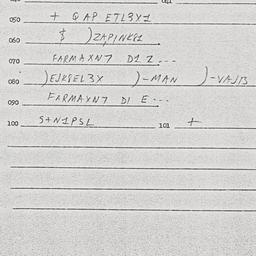 050 + Q AP ETL3Y1
060 $ )ZAPINK81
070 FARMAXN7 D1 2...
080 )EJKSEL3X )-MAN )-VAJ13
090 FARMAXN7 D1 E...
100 S+N1PSL 101 +